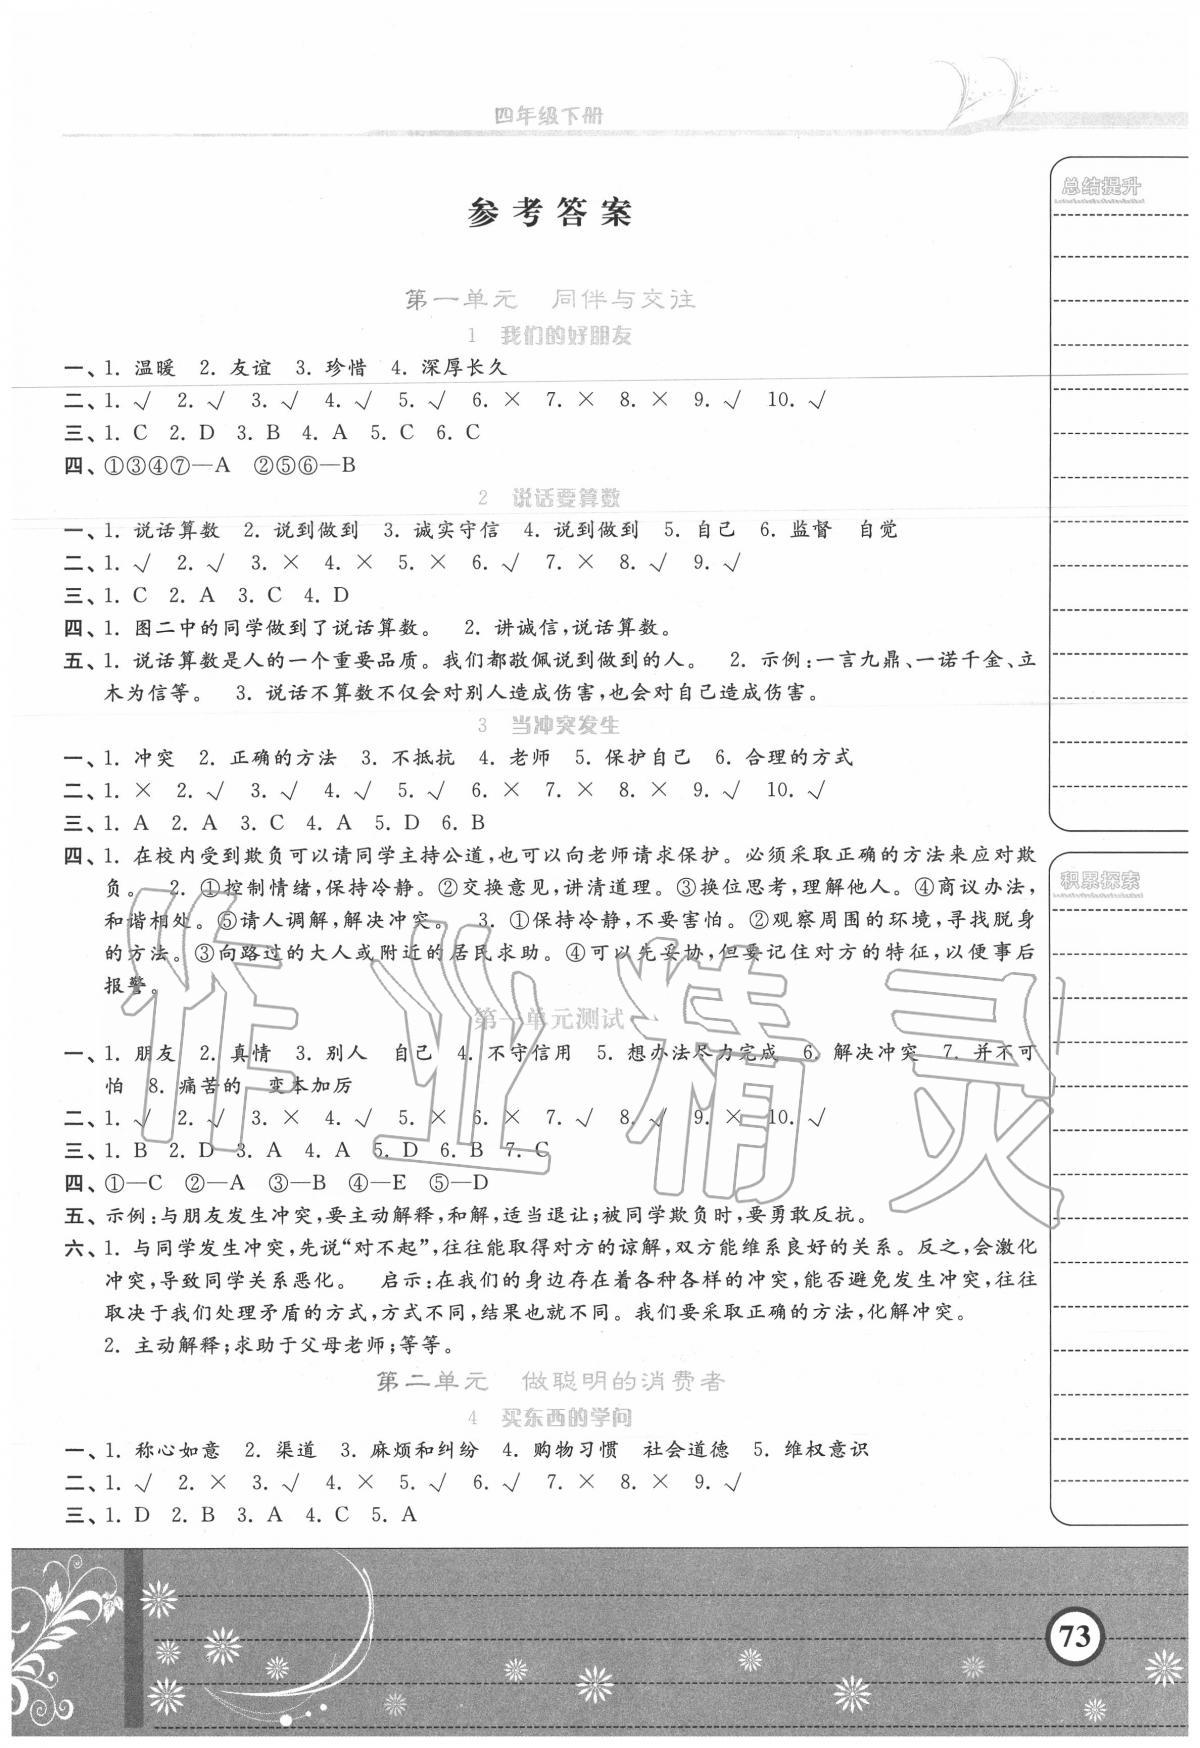 四年级下册
参考答案
第一单元 同伴与交往
1 我们的好朋友
一、1. 温暖 2. 友谊 3. 珍惜 4. 深厚长久
二、1. √ 2. √ 3. √ 4. √ 5. √ 6. × 7. × 8. × 9. √ 10. √
三、1. C 2. D 3. B 4. A 5. C 6. C
四、①③④⑦—A ②⑤⑥—B
2 说话要算数
一、1. 说话算数 2. 说到做到 3. 诚实守信 4. 说到做到 5. 自己 6. 监督 自觉
二、1. √ 2. √ 3. × 4. × 5. × 6. √ 7. × 8. √ 9. √
三、1. C 2. A 3. C 4. D
四、1. 图二中的同学做到了说话算数。 2. 讲诚信,说话算数。
五、1. 说话算数是人的一个重要品质。我们都敬佩说到做到的人。 2. 示例:一言九鼎、一诺千金、立
木为信等。 3. 说话不算数不仅会对别人造成伤害,也会对自己造成伤害。
3 当冲突发生
一、1. 冲突 2. 正确的方法 3. 不抵抗 4. 老师 5. 保护自己 6. 合理的方式
二、1. × 2. √ 3. √ 4. √ 5. √ 6. × 7. × 8. × 9. √ 10. √
三、1. A 2. A 3. C 4. A 5. D 6. B
四、1. 在校内受到欺负可以请同学主持公道,也可以向老师请求保护。必须采取正确的方法来应对欺
负。 2. ①控制情绪,保持冷静。②交换意见,讲清道理。③换位思考,理解他人。④商议办法,
和谐相处。⑤请人调解,解决冲突。 3. ①保持冷静,不要害怕。②观察周围的环境,寻找脱身
的方法。③向路过的大人或附近的居民求助。④可以先妥协,但要记住对方的特征,以便事后
报警。
第一单元测试
一、1. 朋友 2. 真情 3. 别人 自己 4. 不守信用 5. 想办法尽力完成 6. 解决冲突 7. 并不可
怕 8. 痛苦的 变本加厉
二、1. √ 2. √ 3. × 4. √ 5. × 6. × 7. √ 8. √ 9. × 10. √
三、1. B 2. D 3. A 4. A 5. D 6. B 7. C
四、①—C ②—A ③—B ④—E ⑤—D
五、示例:与朋友发生冲突,要主动解释,和解,适当退让;被同学欺负时,要勇敢反抗。
六、1. 与同学发生冲突,先说“对不起”,往往能取得对方的谅解,双方能维系良好的关系。反之,会激化
冲突,导致同学关系恶化。 启示:在我们的身边存在着各种各样的冲突,能否避免发生冲突,往往
取决于我们处理矛盾的方式,方式不同,结果也就不同。我们要采取正确的方法,化解冲突。
2. 主动解释;求助于父母老师;等等。
第二单元 做聪明的消费者
4 买东西的学问
一、1. 称心如意 2. 渠道 3. 麻烦和纠纷 4. 购物习惯 社会道德 5. 维权意识
二、1. √ 2. × 3. √ 4. × 5. √ 6. √ 7. × 8. × 9. √
三、1. D 2. B 3. A 4. C 5. A
总结提升
积累探索
作业精灵
73